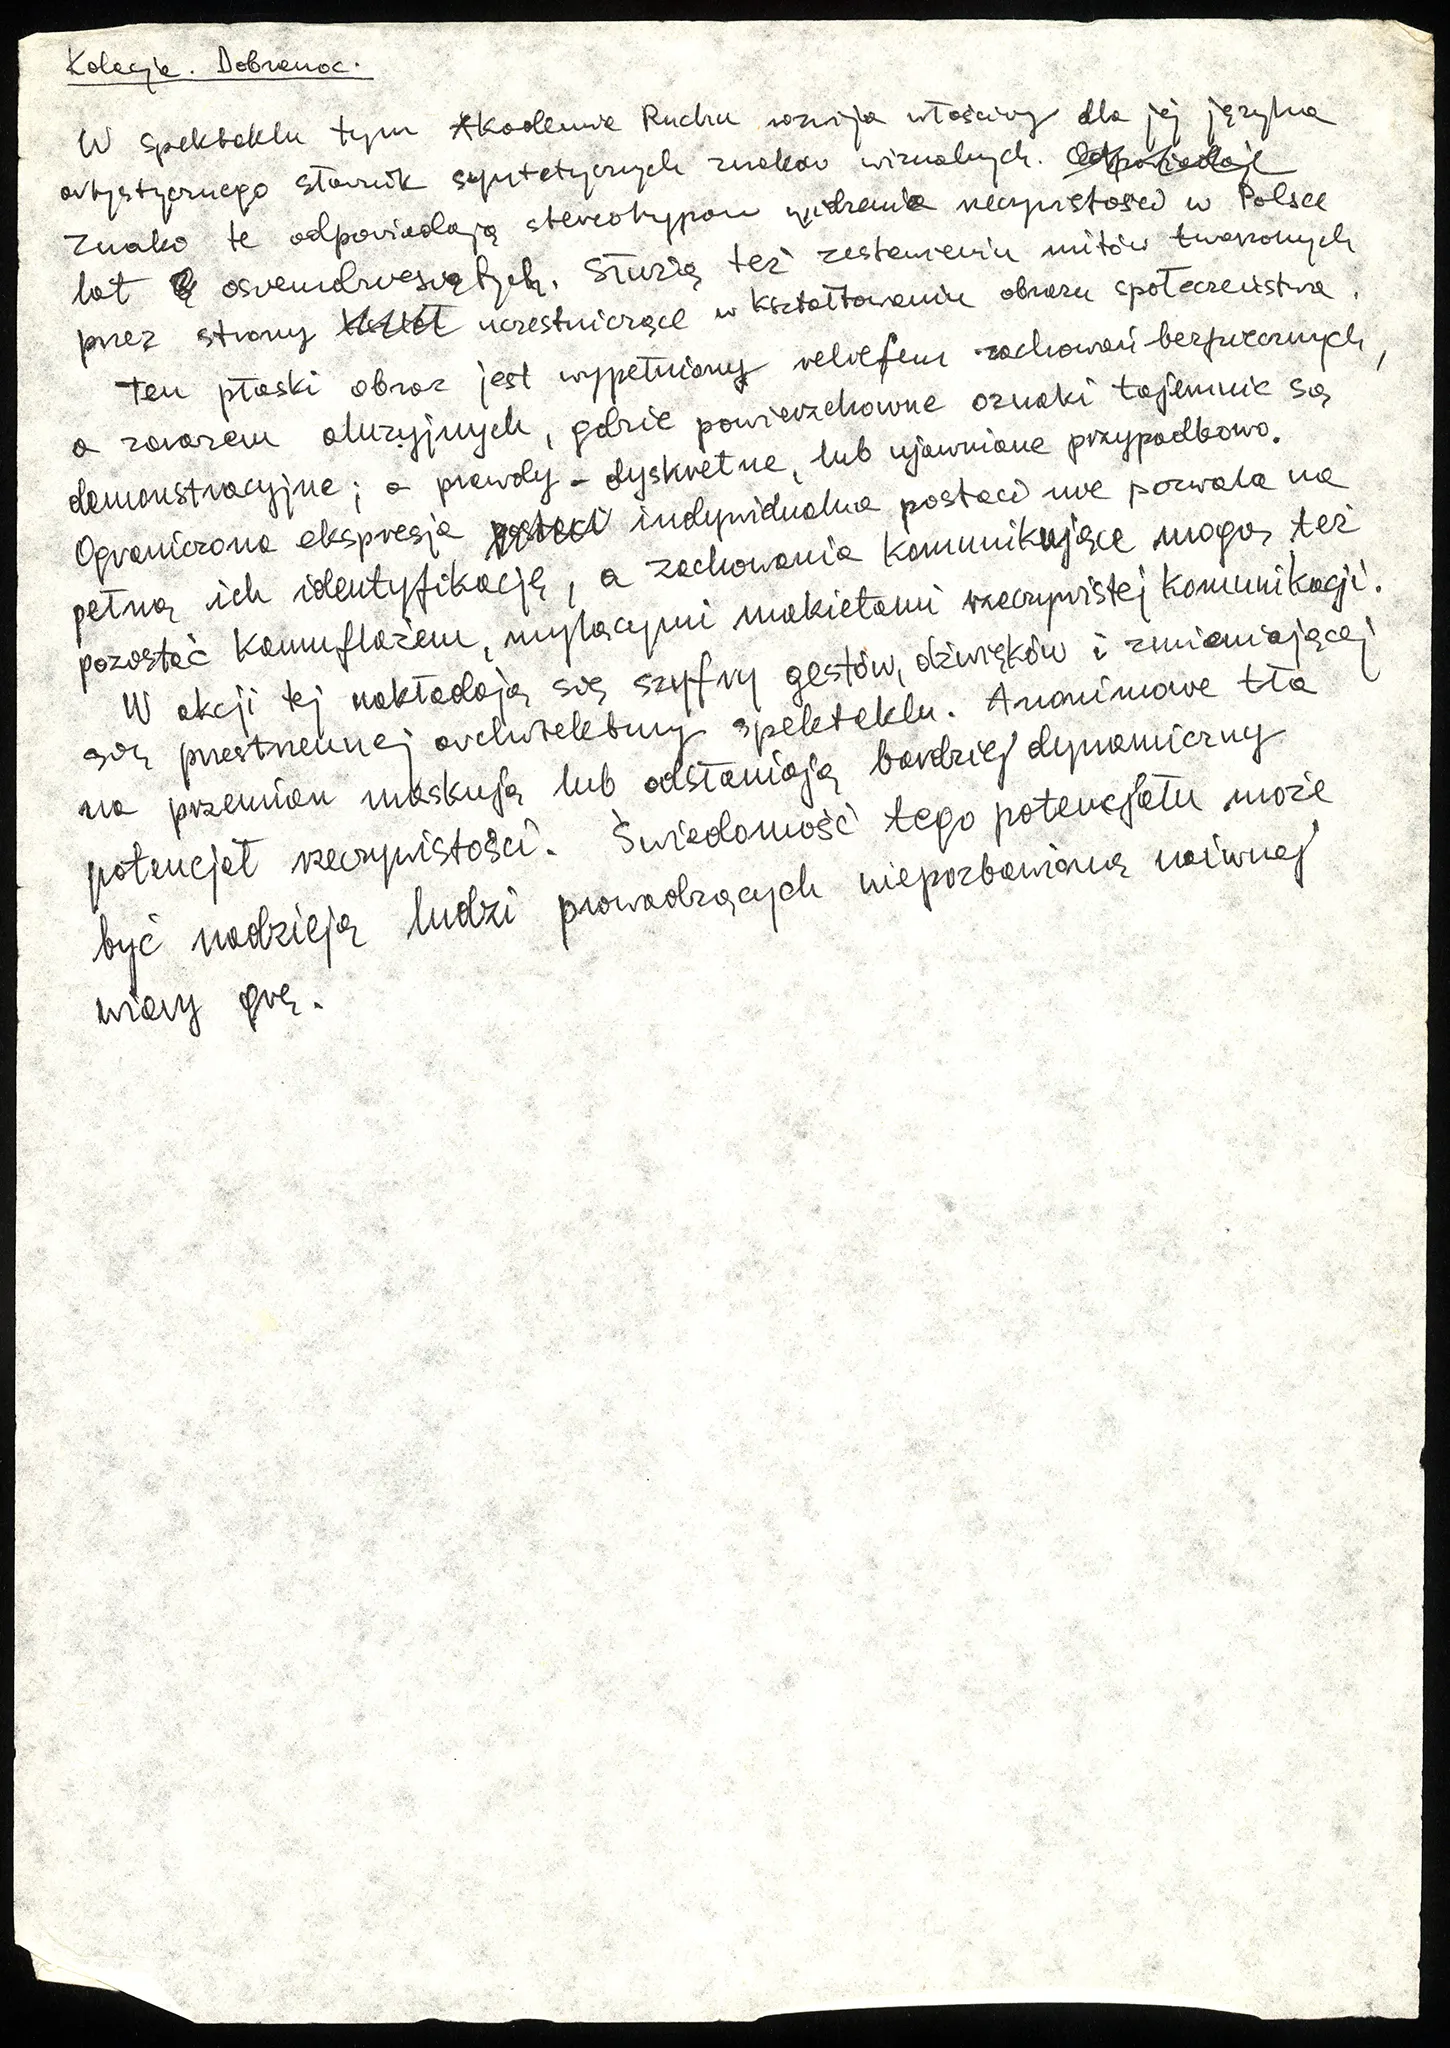 Kolacja. Dobranoc.
W spektaklu tym Akademia Ruchu rozwija właściwy dla jej języka
artystycznego słownik syntetycznych znaków wizualnych. Odpowiadają
Znaki te odpowiadają stereotypom widzenia rzeczywistości w Polsce
lat osiemdziesiątych. Służą też zestawieniu mitów tworzonych
przez strony uczestniczące w kształtowaniu obrazu społeczeństwa.
Ten płaski obraz jest wypełniony reliefem zachowań bezpiecznych,
a zarazem aluzyjnych, gdzie powierzchowne oznaki tajemnic są
demonstracyjne; a prawdy - dyskretne, lub ujawniane przypadkowo.
Ograniczona ekspresja postaci indywidualna postaci nie pozwala na
pełną ich identyfikację, a zachowania komunikujące mogą też
pozostać kamuflażem, mylącymi makietami rzeczywistej komunikacji.
W akcji tej nakładają się szyfry gestów, dźwięków i zmieniającej
się przestrzennej architektury spektaklu. Anonimowe tła
na przemian maskują lub odsłaniają bardziej dynamiczny
potencjał rzeczywistości. Świadomość tego potencjału może
być nadzieją ludzi prowadzących niepozbawioną naiwnej
wiary grę.